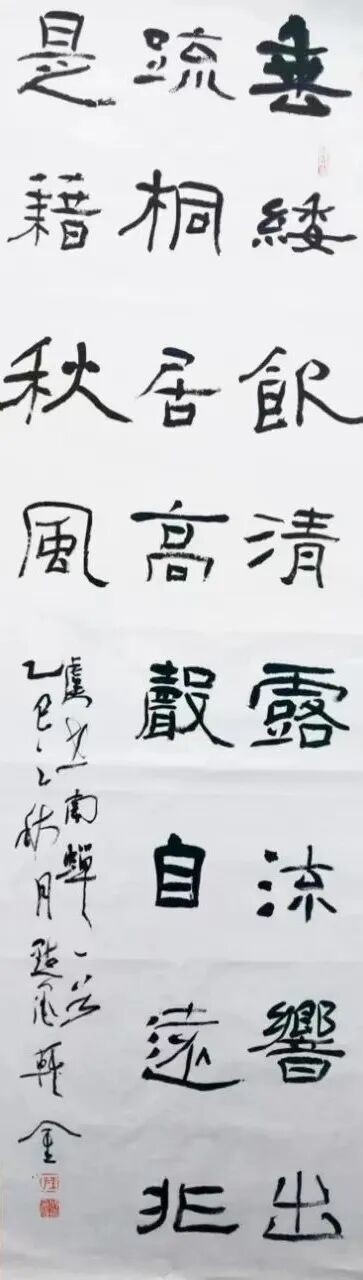 垂緌飲清露流響出
疏桐居高聲自遠非
是藉秋風
虞世南蟬一首
乙巳之秋月風軒金